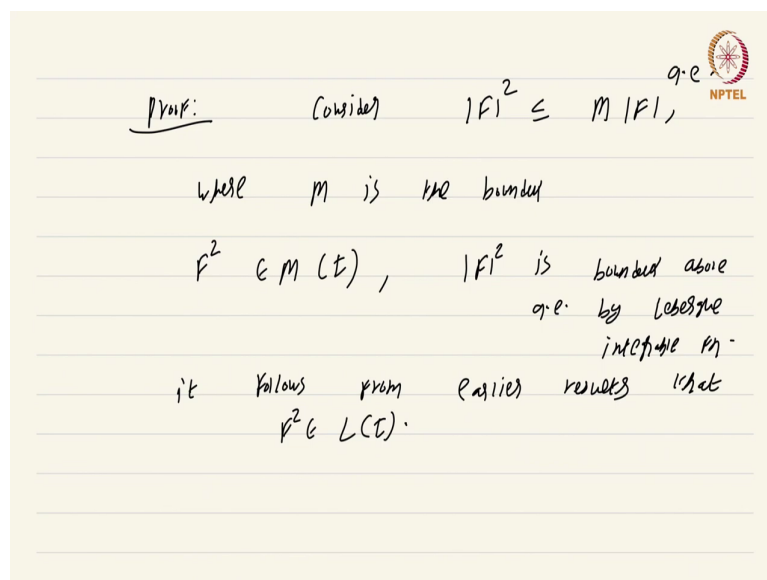 a.e.
NPTEL
Proof: Consider |F|² ≤ M |F|,
where M is the bounded
F² ∈ M(I), |F|² is bounded above
a.e. by Lebesgue
integrable fn.
it follows from earlier results that
F² ∈ L(I).